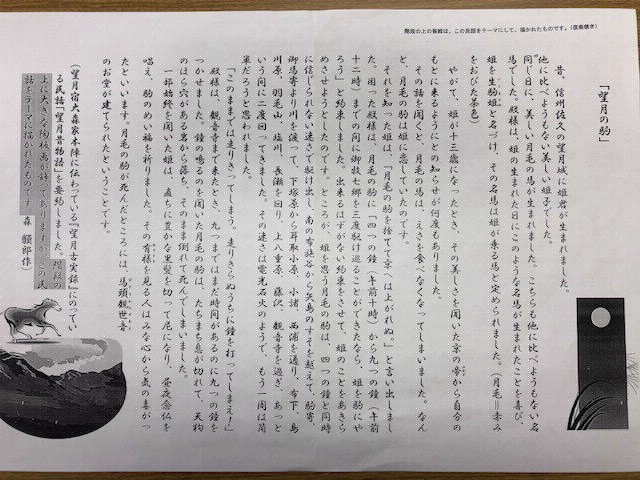 階段の上の板絵は、この民話をテーマにして、描かれたものです。(信楽焼き)
「望月の駒」
昔、信州佐久の望月城に姫君が生まれました。
他に比べようもない美しい姫子でした。
同じ日に、美しい月毛の馬が生まれました。こちらも他に比べようもない名
馬でした。殿様は、姫の生まれた日にこのような名馬が生まれたことを喜び、
姫を生駒姫と名づけ、その名馬は姫が乗る馬と定められました。(月毛=赤み
をおびた茶色)
やがて、姫が十三歳になったとき、その美しさを聞いた京の帝から自分の
もとに来るようにとの知らせが何度もありました。
その話を聞くと、月毛の馬は、えさを食べなくなってしまいました。なん
と、月毛の馬は姫に恋していたのです。
それを知った姫は、「月毛の駒を捨てて京へは上がれぬ。」と言い出しまし
た。困った殿様は、月毛の駒に「四つの鐘(午前十時)から九つの鐘(午前
十二時)までの間に御牧七郷を三度駆け巡ることができたなら、姫を駒にや
ろう」と約束しました。出来るはずがない約束をさせて、姫のことをあきら
めさせようとしたのです。ところが、姫を思う月毛の駒は、四つの鐘と同時
に信じられない速さで駆け出し、南の布施谷から矢島のすそを越えて、駒寄、
御馬寄より川を渡って、下塚原から耳取小原、小諸、西浦を通り、布下、島
川原、羽毛山、塩川、長瀬を回り、上八重原、藤沢、観音寺を過ぎ、あっと
いう間に二度回ってきました。その速さは電光石火のようで、もう一周は簡
単だろうと思われました。
「このままでは走りきってしまう。走りきらぬうちに鐘を打ってしまえ!」
殿様は、観音寺まで来たとき、九つまではまだ時間があるのに九つの鐘を
つかせました。鐘の鳴るのを聞いた月毛の駒は、たちまち息が切れて、天狗
のほら穴がある岩から落ち、そのまま倒れて死んでしまいました。
一部始終を聞いた姫は、直ちに豊かな黒髪を切って尼になり、昼夜念仏を
唱え、駒のめい福を祈りました。その有様を見る人はみな心から気の毒がっ
たといいます。月毛の駒が死んだところには、馬頭観世音
のお堂が建てられたということです。
(望月宿大森家本陣に伝わっている『望月古実録』にのってい
る民話「望月昔物語」を要約しました。階段の
上に大きな陶板画が飾ってありますが、この民
話をテーマに描かれたものです。 森 貘郎作)